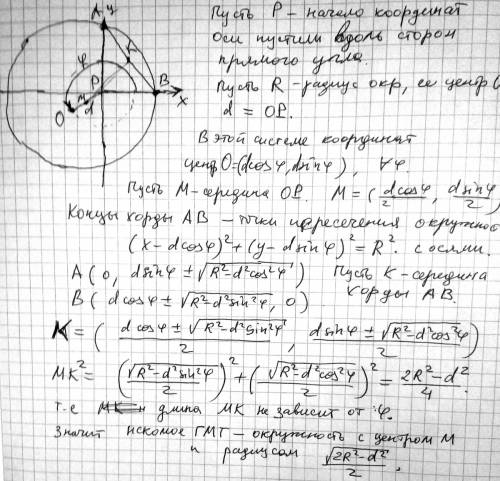 A y
φ
K
P
B
x
O
M
d
Пусть P - начало координат
оси пустили вдоль сторон
прямого угла.
Пусть R - радиус окр, ее центр O
d = OP.
В этой системе координат
центр O=(dcosφ, dsinφ), ∀φ.
Пусть M - середина OP. M = (dcosφ/2, dsinφ/2)
Концы хорды AB - точки пересечения окружнос
(x - dcosφ)² + (y - dsinφ)² = R². с осями.
A (0, dsinφ ± √(R²-d²cos²φ)) Пусть K - середина
B (dcosφ ± √(R²-d²sin²φ), 0) хорды AB.
K = ( (dcosφ ± √(R²-d²sin²φ))/2 , (dsinφ ± √(R²-d²cos²φ))/2 )
MK² = (√(R²-d²sin²φ)/2)² + (√(R²-d²cos²φ)/2)² = (2R²-d²)/4.
т.е длина MK не зависит от φ.
Значит искомое ГМТ - окружность с центром M
и радиусом √(2R²-d²)/2.